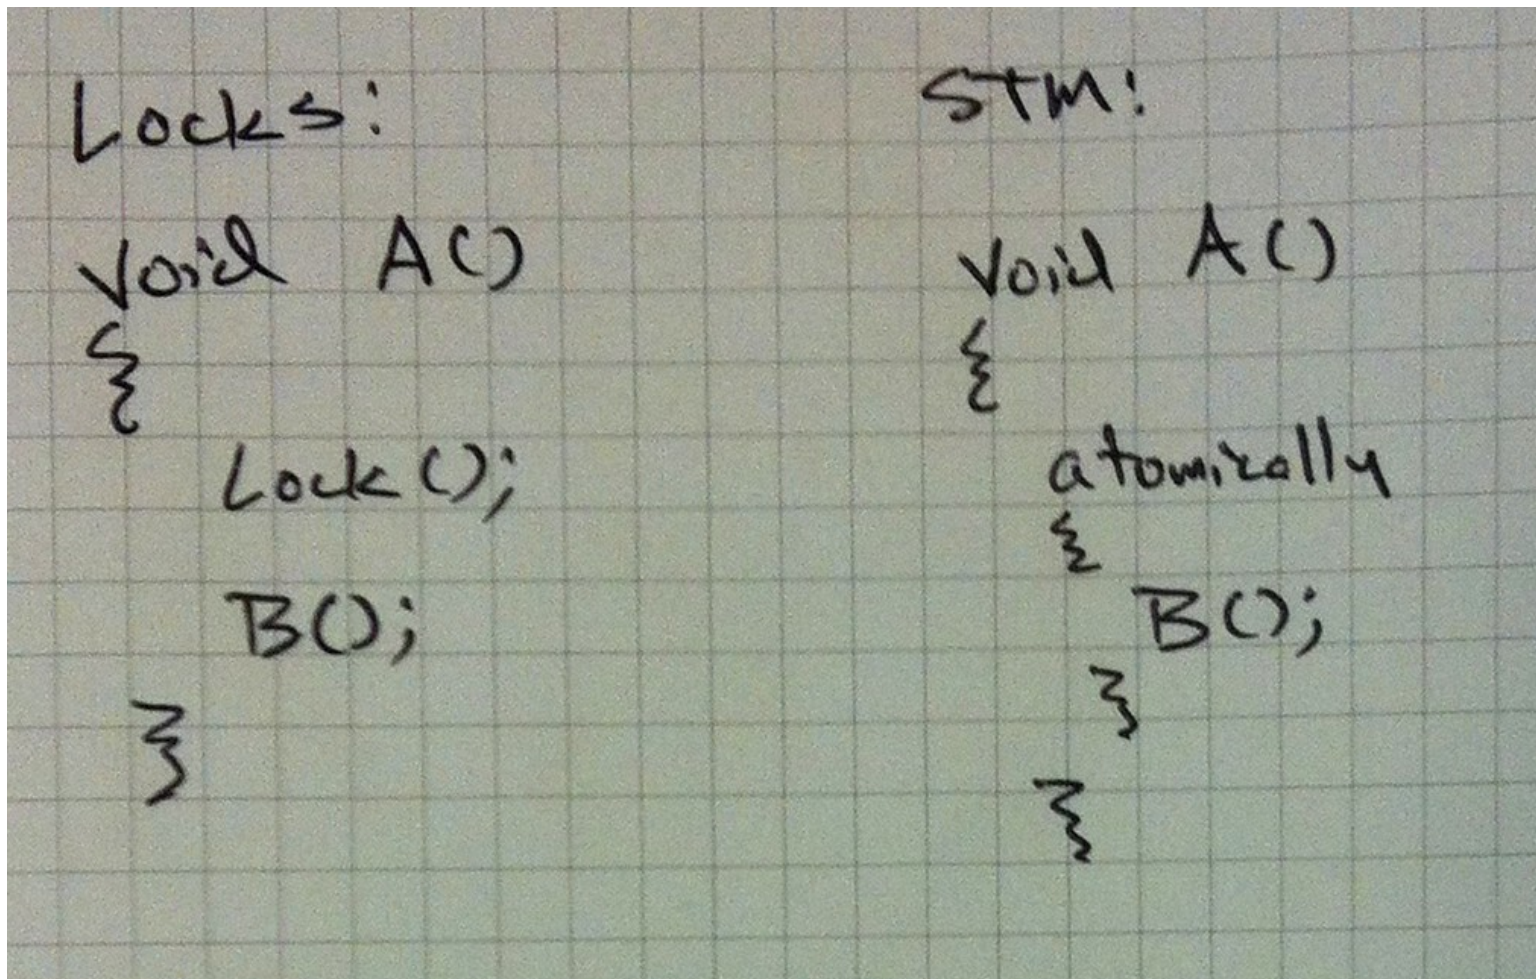 Locks:
Void A()
{
Lock();
B();
}
STM:
Void A()
{
atomically
{
B();
}
}